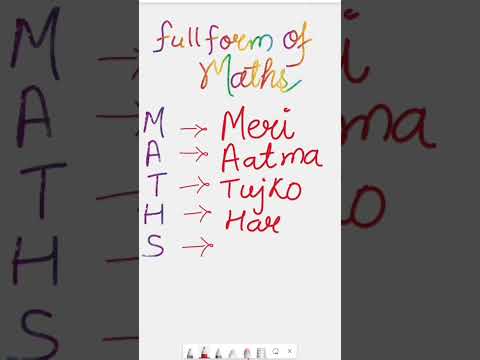 full form of
Maths
M → Meri
A → Aatma
T → Tujko
H → Har
S →